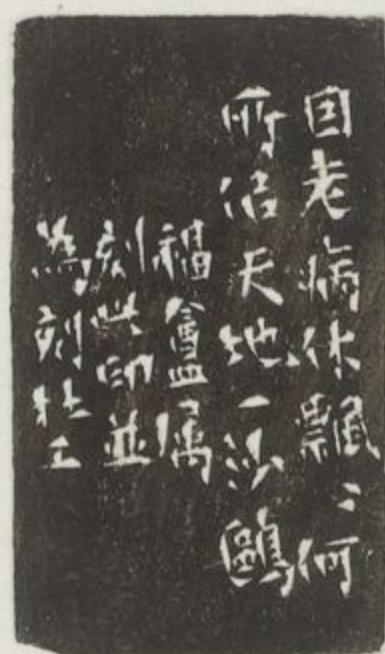 因老病休飄〻何
所佀天地一沙鷗
福盦属
刻此印並
為刻杜工